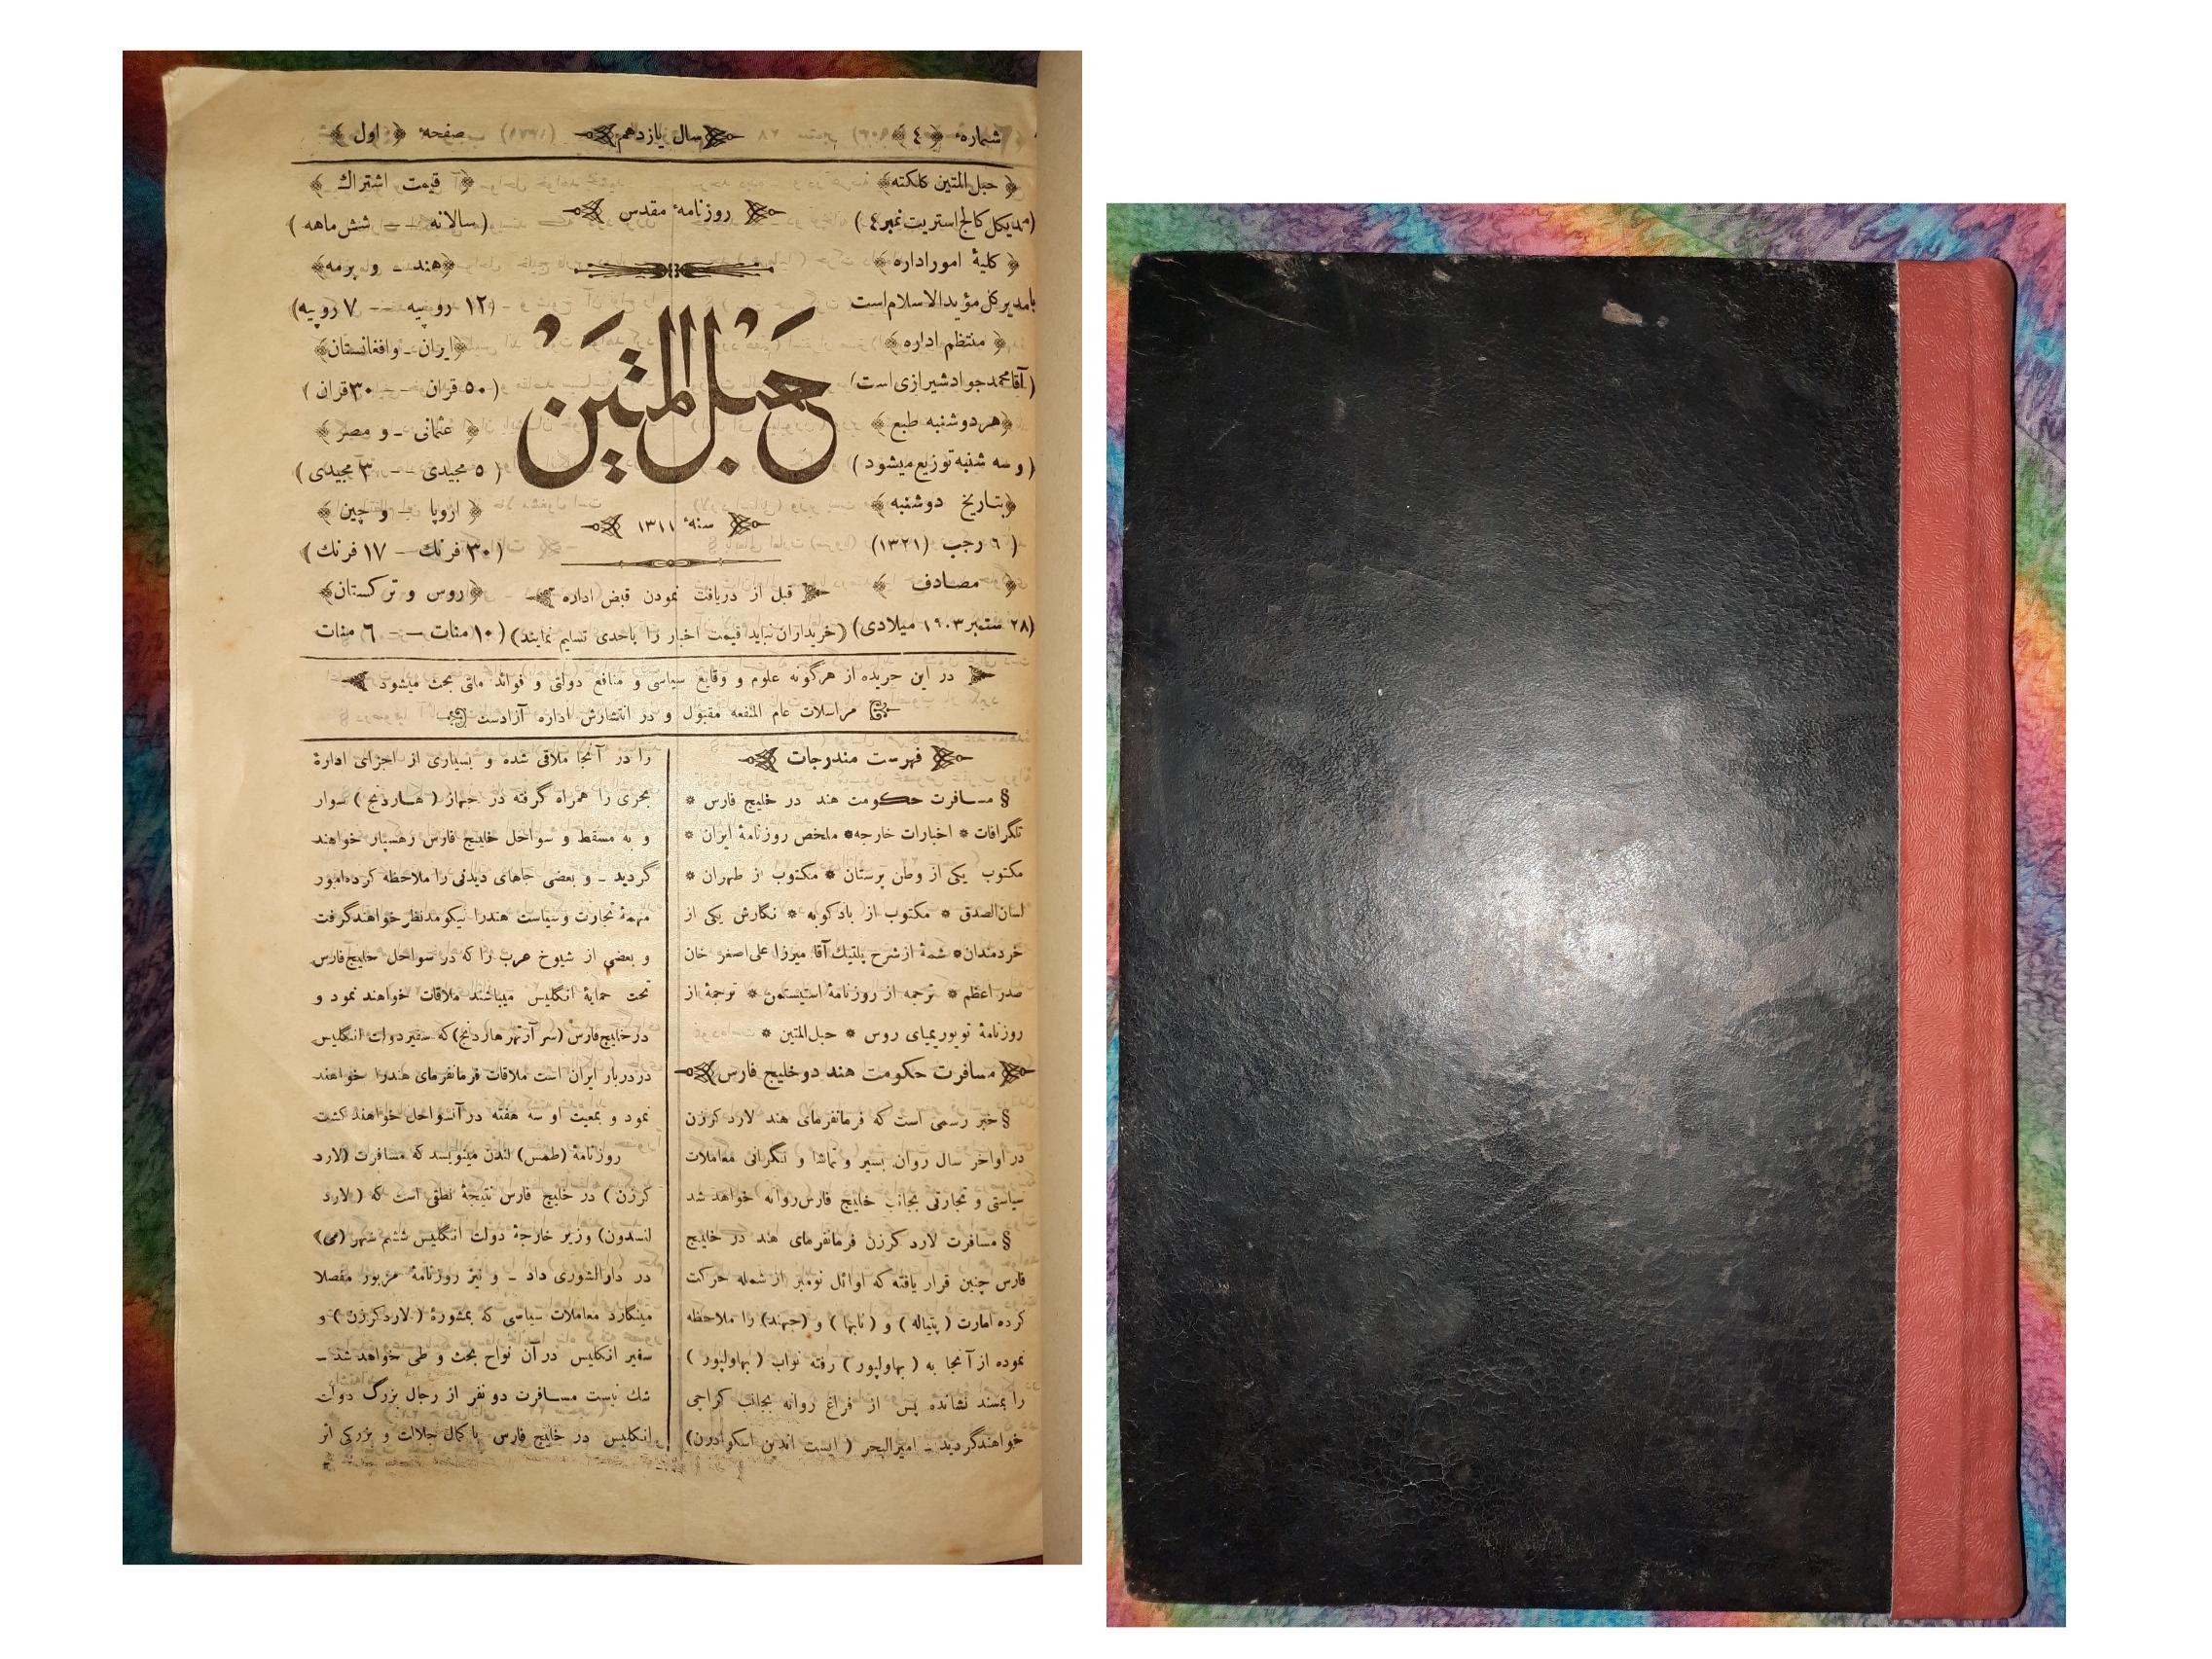 شماره ﴿ ٤ ﴾
سال یازدهم
صفحهٔ ﴿ اول ﴾
﴿ حبل المتین کلکته ﴾
(مدیکل کالج استریت نمبر ٤)
﴿ کلیهٔ امور اداره ﴾
با مدیر کل مؤید الاسلام است
﴿ منتظم اداره ﴾
(آقا محمد جواد شیرازی است)
﴿ هر دوشنبه طبع ﴾
(و سه شنبه توزیع میشود)
﴿ بتاریخ دوشنبه ﴾
(٦ رجب (١٣٢١)
﴿ مصادف ﴾
(٢٨ ستمبر ١٩٠٣ میلادی)
روزنامهٔ مقدس
حَبْلُ المَتینْ
سنهٔ ١٣١١
قبل از دریافت نمودن قبض اداره
(خریداران نباید قیمت اخبار را باحدی تسلیم نمایند)
﴿ قیمت اشتراك ﴾
(سالانه — شش ماهه)
﴿ هند ـ و برمه ﴾
(١٢ روپیه — ٧ روپیه)
﴿ ایران ـ وافغانستان ﴾
(٥٠ قران — ٣٠ قران)
﴿ عثمانی ـ و مصر ﴾
(٥ مجیدی — ٣ مجیدی)
﴿ اروپا ـ و چین ﴾
(٣٠ فرنك — ١٧ فرنك)
﴿ روس و ترکستان ﴾
(١٠ منات — ٦ منات
در این جریده از هرگونه علوم و وقایع سیاسی و منافع دولتی و فوائد ملتی بحث میشود
مراسلات عام المنفعه مقبول و در انتشارش اداره آزادست
فهرست مندرجات
§ مسافرت حکومت هند در خلیج فارس *
تلگرافات * اخبارات خارجه * ملخص روزنامهٔ ایران *
مکتوب یکی از وطن پرستان * مکتوب از طهران *
لسان الصدق * مکتوب از بادکوبه * نگارش یکی از
خردمندان * شمهٔ از شرح پلتیك آقا میرزا علی اصغر خان
صدر اعظم * ترجمه از روزنامهٔ استیستمن * ترجمهٔ از
روزنامهٔ نویوریمیای روس * حبل المتین *
مسافرت حکومت هند دو خلیج فارس
§ خبر رسمی است که فرمانفرمای هند لارد کرزن
در اواخر سال روان بسیر و تماشا و نگرانی معاملات
سیاستی و تجارتی بجانب خلیج فارس روانه خواهد شد
§ مسافرت لارد کرزن فرمانفرمای هند در خلیج
فارس چنین قرار یافته که اوائل نومبر از شمله حرکت
کرده امارت (پتیاله) و (نابها) و (جهند) را ملاحظه
نموده از آنجا به (بهاولپور) رفته نواب (بهاولپور)
را بمسند نشانده پس از فراغ روانه بجانب کراچی
خواهند گردید ـ امیرالبحر (ایست اندین اسکوادرن)
را در آنجا ملاقی شده و بسیاری از اجزای ادارهٔ
بحری را همراه گرفته در جهاز (هاردنج) سوار
و به مسقط و سواحل خلیج فارس رهسپار خواهند
گردید ـ و بعضی جاهای دیدنی را ملاحظه کرده امور
مهمهٔ تجارت و سیاست هند را نیکو مدنظر خواهند گرفت
و بعضی از شیوخ عرب را که در سواحل خلیج فارس
تحت حمایهٔ انگلیس میباشند ملاقات خواهند نمود و
در خلیج فارس (سر آرتهر هاردنج) که سفیر دولت انگلیس
در دربار ایران است ملاقات فرمانفرمای هند را خواهند
نمود و بمعیت او سه هفته در آنسواحل خواهند کشت
روزنامهٔ (طمس) لندن مینویسد که مسافرت (لارد
کرزن) در خلیج فارس نتیجهٔ نطقی است که (لارد
لنسدون) وزیر خارجهٔ دولت انگلیس ششم شهر (می)
در دارالشوری داد ـ و نیز روزنامهٔ مزبور مفصلا
مینگارد معاملات سیاسی که بمشورهٔ (لارد کرزن) و
سفیر انگلیس در آن نواح بحث و طی خواهد شد ـ
شك نیست مسافرت دو نفر از رجال بزرگ دولت
انگلیس در خلیج فارس با کمال جلالت و بزرکی اثر